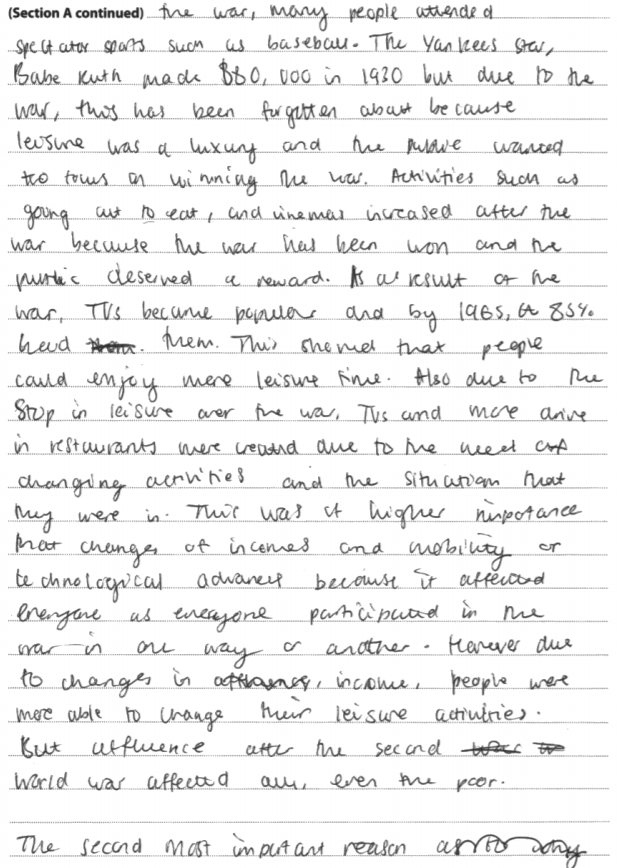 (Section A continued) the war, many people attended
spectator sports such as baseball. The Yankees star,
Babe Ruth made $80,000 in 1930 but due to the
war, this has been forgotten about because
leisure was a luxury and the public wanted
to focus on winning the war. Activities such as
going out to eat, and cinemas increased after the
war because the war has been won and the
public deserved a reward. As a result of the
war, TVs became popular and by 1965, 85%
had them. This showed that people
could enjoy more leisure time. Also due to the
stop in leisure over the war, TVs and more drive
in restaurants were created due to the need of
changing activities and the situation that
they were in. This was of higher importance
that changes of incomes and mobility or
technological advances because it affected
everyone as everyone participated in the
war in one way or another. However due
to changes in affluence, income, people were
more able to change their leisure activities.
But affluence after the second
world war affected all, even the poor.
The second most important reason as to why